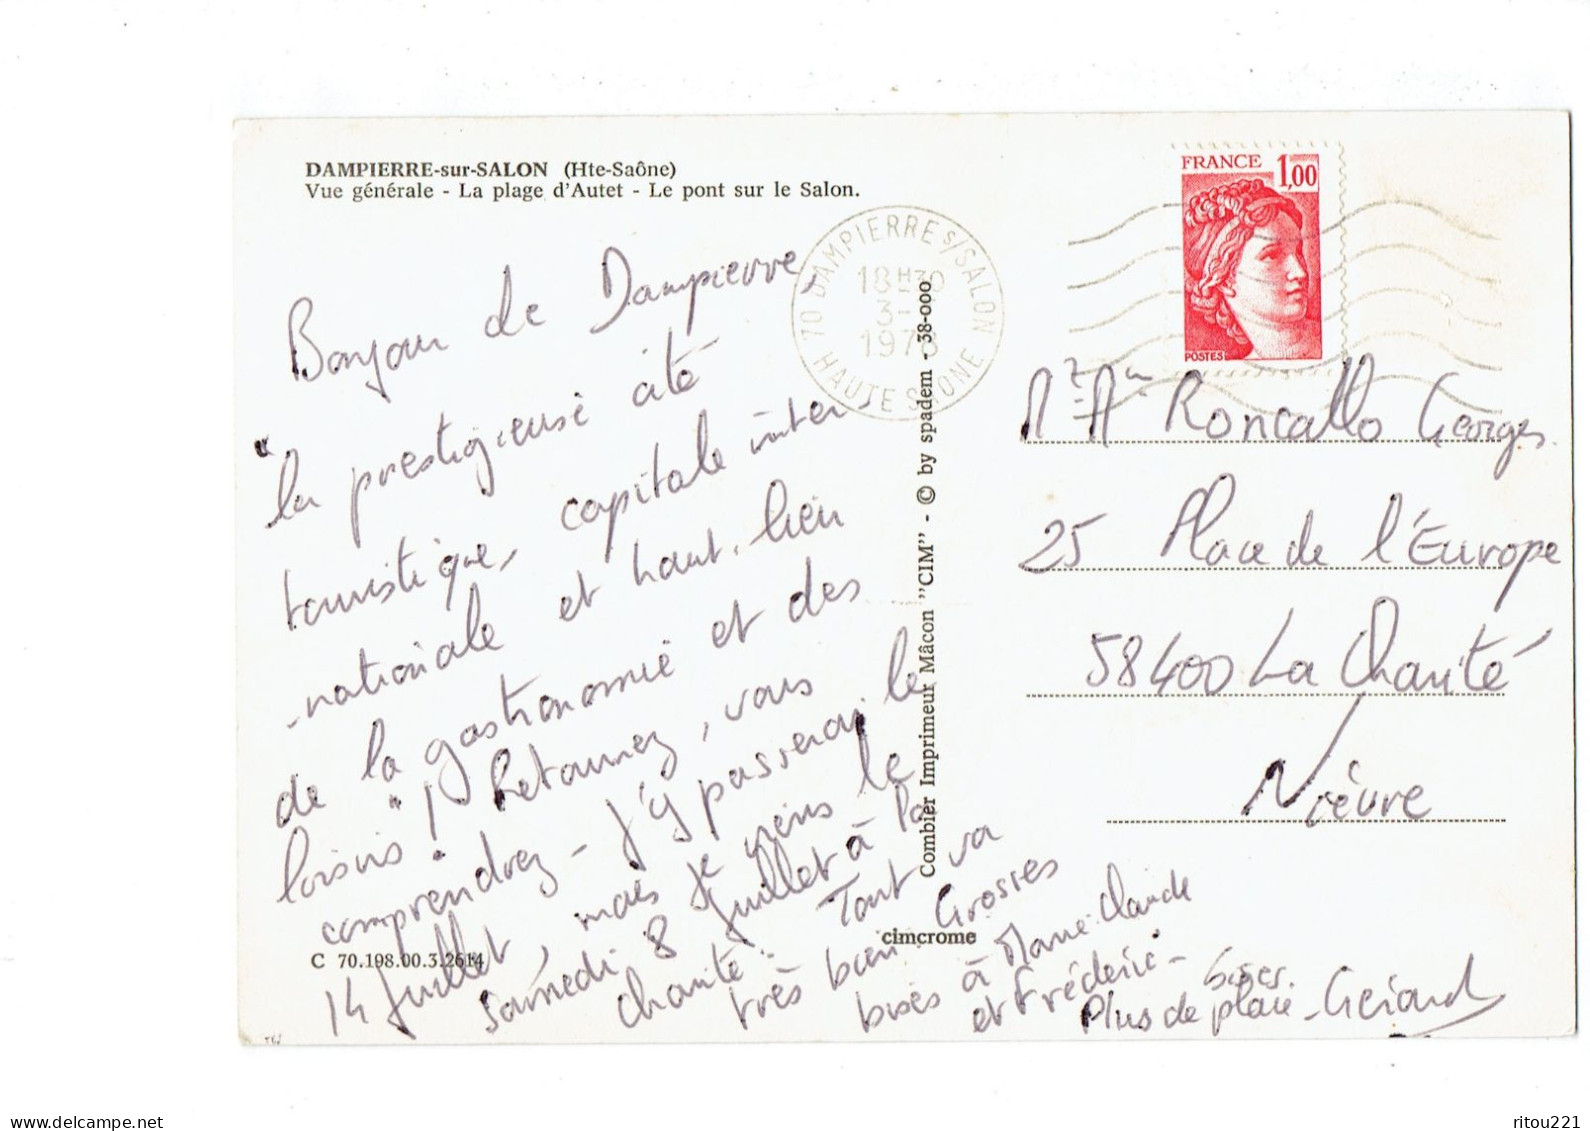 DAMPIERRE-sur-SALON (Hte-Saône)
Vue générale - La plage d'Autet - Le pont sur le Salon.
FRANCE 1,00
POSTES
70 DAMPIERRE S/SALON
18H30
1978
HAUTE SAONE
Bonjour de Dampierre,
"la prestigieuse cité
touristique, capitale inter-
-nationale et haut-lieu
de la gastronomie et des
loisirs"! Retournez, vous
comprendrez - J'y passerai le
14 Juillet, mais je viens le
samedi 8 Juillet à la
Charité. Tout va
très bien Grosses
bises à Marie-Claude
et Frédéric -
bises.
Plus de place - Gérard
Roncallo Georges
25 Place de l'Europe
58400 La Charité
Nièvre
Combier Imprimeur Mâcon "CIM" - © by spadem - 38-000
cimcrome
C 70.198.00.3.2614
delcampe.net
ritou221